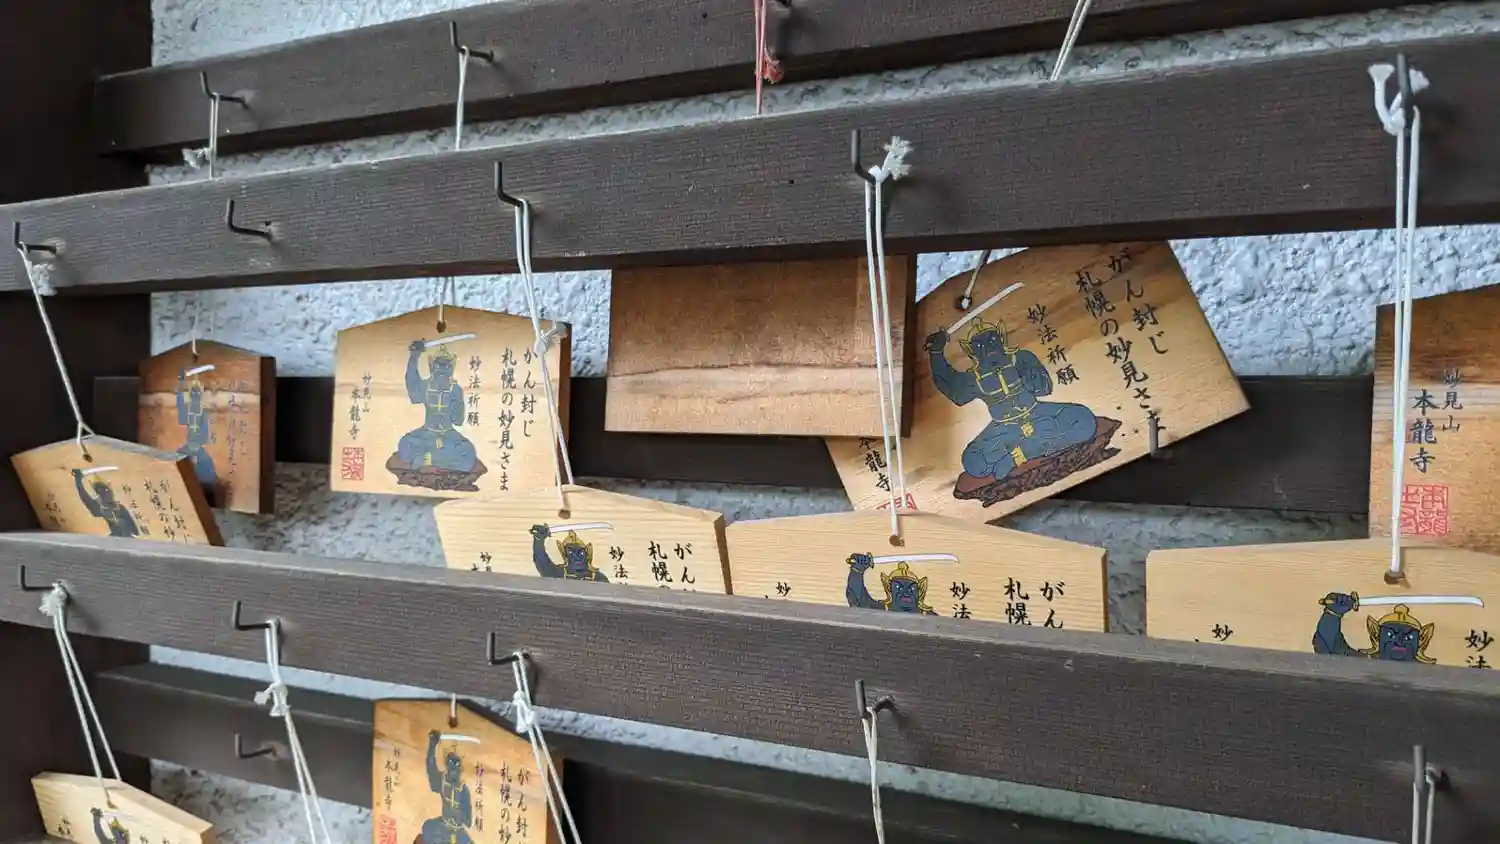 がん封じ
札幌の妙見さま
妙法祈願
妙見山
本龍寺
がん封じ
札幌の妙見さま
妙法祈願
本龍寺
妙見山
本龍寺
がん封じ
札幌の妙
妙法祈願
がん
札幌の
妙法
妙見
がん
札幌
妙法
妙
妙
妙法
がん封じ
札幌の妙
妙法祈願
本龍寺